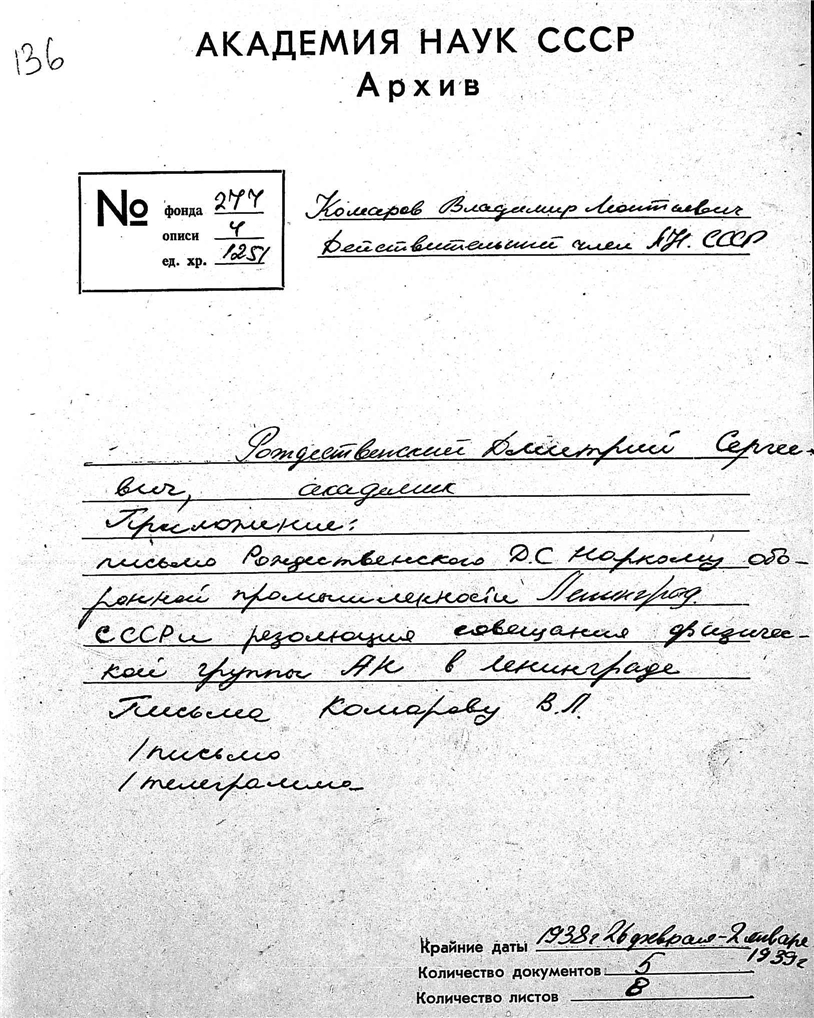 136
АКАДЕМИЯ НАУК СССР
Архив
№ фонда 277
описи 4
ед. хр. 1251
Комаров Владимир Леонтьевич
Действительный член АН. СССР
Рождественский Дмитрий Сергее-
вич, академик
Приложение:
письмо Рождественского Д.С Наркому обо-
ронной промышленности Ленинград.
СССР и резолюция совещания физичес-
кой группы АН в Ленинграде
Письма Комарову В.Л.
1 письмо
1 телеграмма
Крайние даты 1938 г 26 февраля - 2 января
1939 г
Количество документов: 5
Количество листов 8